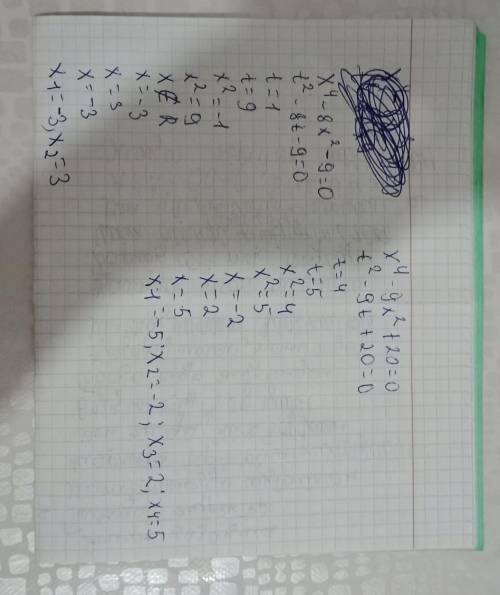 x⁴-8x²-9=0
t²-8t-9=0
t=1
t=9
x²=-1
x²=9
x∉R
x=-3
x=3
x=-3
x1=-3, x2=3
x⁴-9x²+20=0
t²-9t+20=0
t=4
t=5
x²=4
x²=5
x=-2
x=2
x=5
x1=-5; x2=-2; x3=2; x4=5